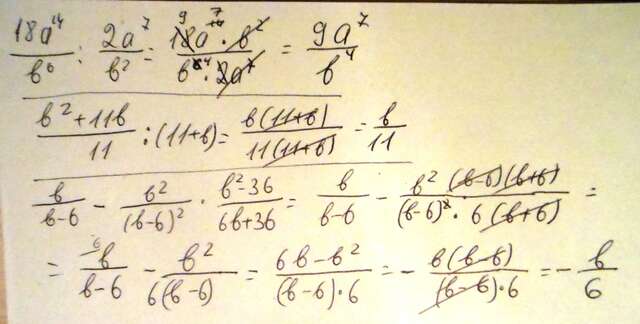 18a¹⁴/b⁶ : 2a⁷/b² = 18a¹⁴ · b²/b⁶ · 2a⁷ = 9a⁷/b⁴
b² + 11b/11 : (11+b) = b(11+b)/11(11+b) = b/11
b/b-6 - b²/(b-6)² · b²-36/6b+36 = b/b-6 - b²(b-6)(b+6)/(b-6)² · 6(b+6) =
= b/b-6 - b²/6(b-6) = 6b-b²/(b-6)·6 = - b(b-6)/(b-6)·6 = - b/6